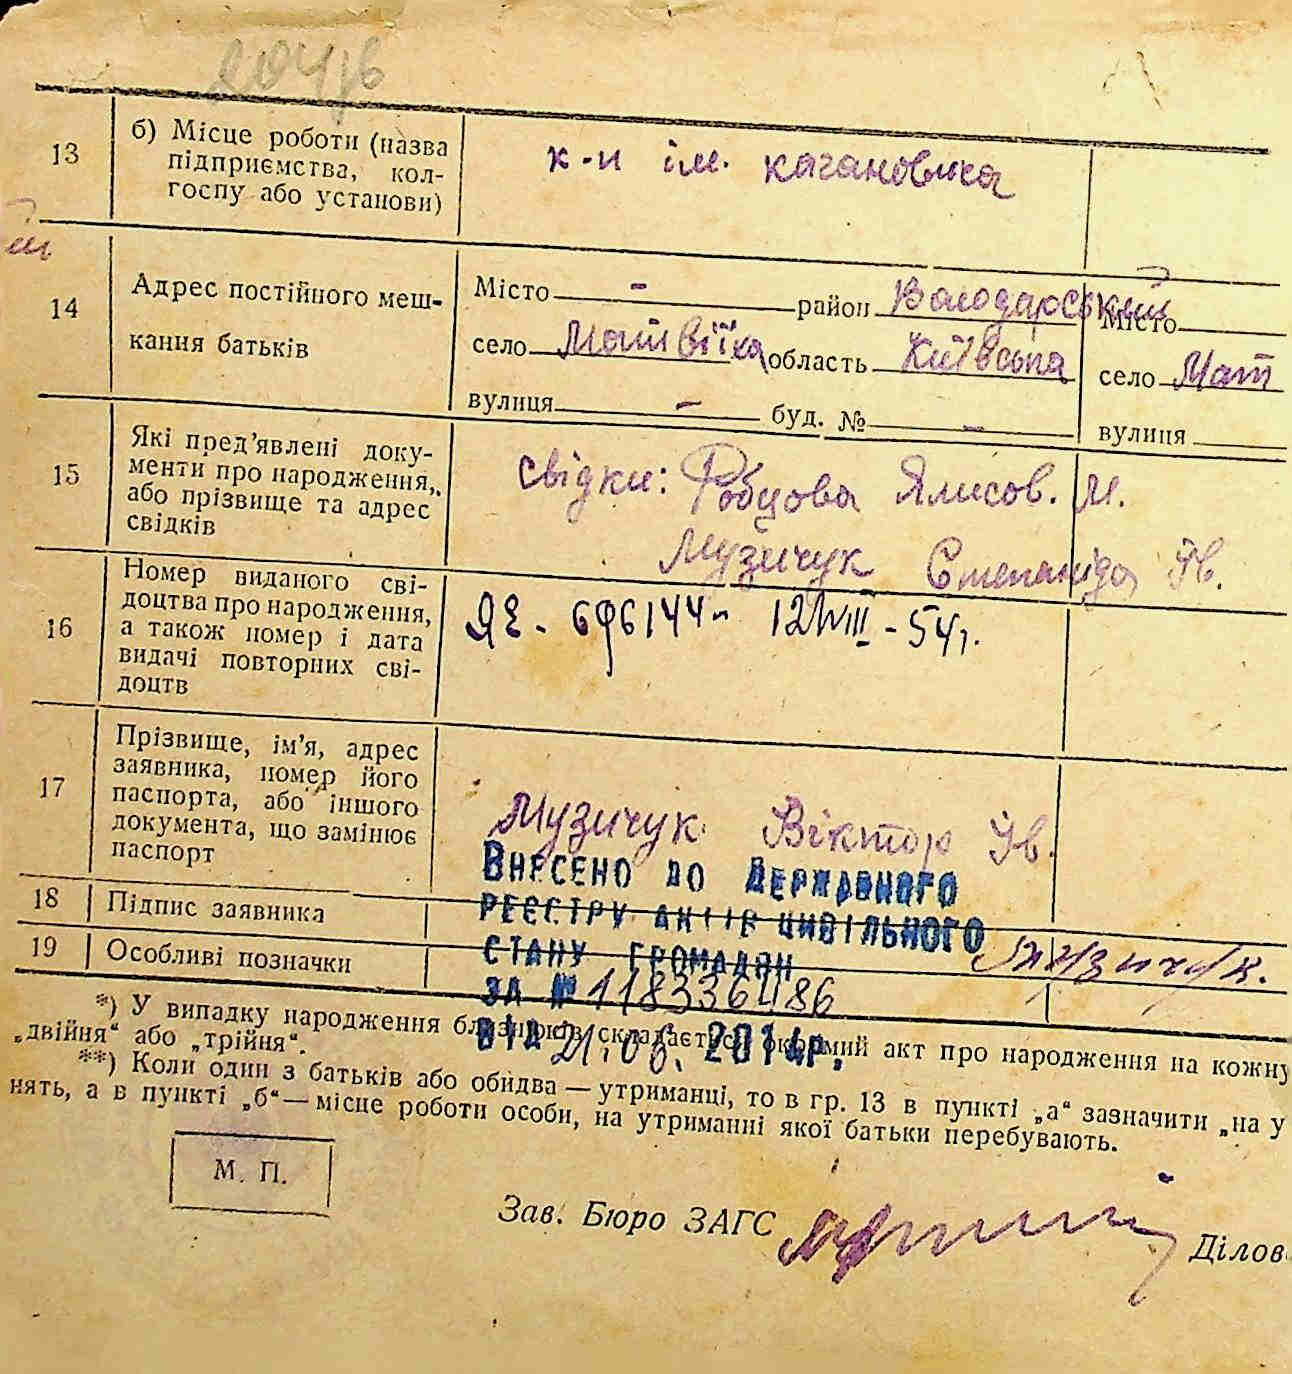 13
б) Місце роботи (назва
підприємства, кол-
госпу або установи)
к-п ім. Кагановича
14
Адрес постійного меш-
кання батьків
Місто - район Володарський
село Матвіїха область Київська
вулиця - буд. № -
Місто
село Мат
вулиця
15
Які пред'явлені доку-
менти про народження,
або прізвище та адрес
свідків
свідки: Рабцова М.
Музичук Степанида Ів.
16
Номер виданого сві-
доцтва про народження,
а також номер і дата
видачі повторних сві-
доцтв
ЯЕ - 696144 12/VIII - 54 г.
17
Прізвище, ім'я, адрес
заявника, номер його
паспорта, або іншого
документа, що замінює
паспорт
Музичук Віктор Ів.
18
Підпис заявника
Музичук.
19
Особливі позначки
ВНЕСЕНО ДО ДЕРЖАВНОГО
РЕЄСТРУ АКТІВ ЦИВІЛЬНОГО
СТАНУ ГРОМАДЯН
ЗА № 1183364186
ВІД 21.06.2014р.
*) У випадку народження близнюків складається окремий акт про народження на кожну
„двійня“ або „трійня“.
**) Коли один з батьків або обидва — утриманці, то в гр. 13 в пункті „а“ зазначити „на у
нять, а в пункті „б“ — місце роботи особи, на утриманні якої батьки перебувають.
М. П.
Зав. Бюро ЗАГС
Ділов